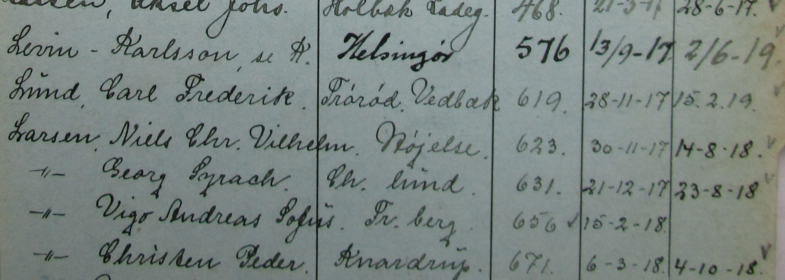 Larsen, Aksel Johs. Holbæk Ladeg. 468. 21-3-17 28-6-17. v
Levin - Karlsson, se K. Helsingör 576 13/9-17 2/6-19.
Lund, Carl Frederik. Trörød, Vedbæk 619. 28-11-17 15.2.19. v
Larsen, Niels Chr. Vilhelm. Højelse. 623. 30-11-17 14-8-18. v
-"- Georg Syrach. Ch. lund. 631. 21-12-17 23-8-18 v
-"- Vigo Andreas Sofus. Fr. berg 656 v 15-2-18.
-"- Christen Peder. Knardrup. 671. 6-3-18. 4-10-18. v